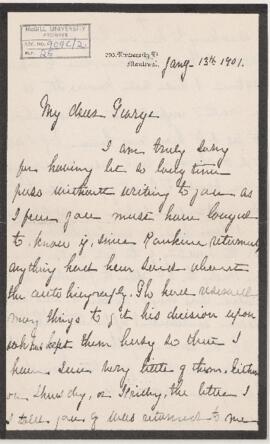 McGILL UNIVERSITY
ARCHIVES
ACC. NO. 909C/2
REF. 26
Montreal.
Jany. 13th 1901.
My dear George
I am truly sorry
for having let so long time
pass without writing to you as
I fear you must have longed
to know if, since Rankine returned,
anything had been said about
the autobiography. He had
many things to get his decision upon
kept them busy so that I
have seen very little of them, either
on Thursday, or Friday, the letter I
I told you I was returned to me